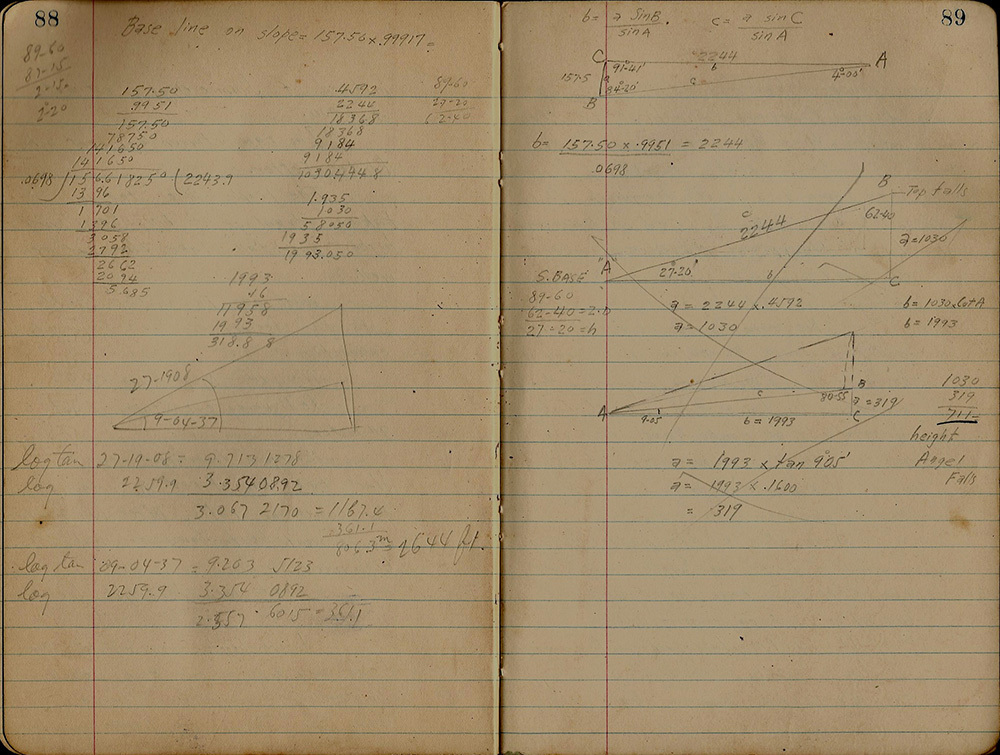 88
Base line on slope = 157.50 x .99917 =
89-60
2-20
157.50
.9951
157.50
78750
141650
141650
.0698 ) 156.618250 ( 2243.9
13 96
1 701
1396
3058
2792
2662
2094
5685
.4592
2244
18368
18368
9184
9184
1030.4448
1.935
1030
58050
1935
1993.050
89-60
27-20
62-40
1993
.16
11958
1993
318.88
27-1908
9-04-37
log tan 27-19-08 = 9.713 1278
log 2259.9 3.3540892
3.067 2170 = 1167.4
361.1
806.3 m = 2644 ft.
log tan 09-04-37 = 9.203 5123
log 2259.9 3.354 0892
2.557 6015 = 361.1
89
b = a SinB / sin A c = a sin C / sin A
C 2244 A
157.5 a 91°-41' b 4°-00'
c
84-20'
B
b = 157.50 x .9951 = 2244
.0698
B Top falls
c 62-40
2244
a = 1030
A 27-20' b C
S. BASE
89-60
62-40 =
27=20 =
a = 2244 x .4592 b = 1030 x Cot A
a = 1030 b = 1993
B
c 80-55
a = 319
A 9-05' b = 1993 C
1030
319
711
height
Angel
Falls
a = 1993 x tan 9°05'
a = 1993 x .1600
= 319